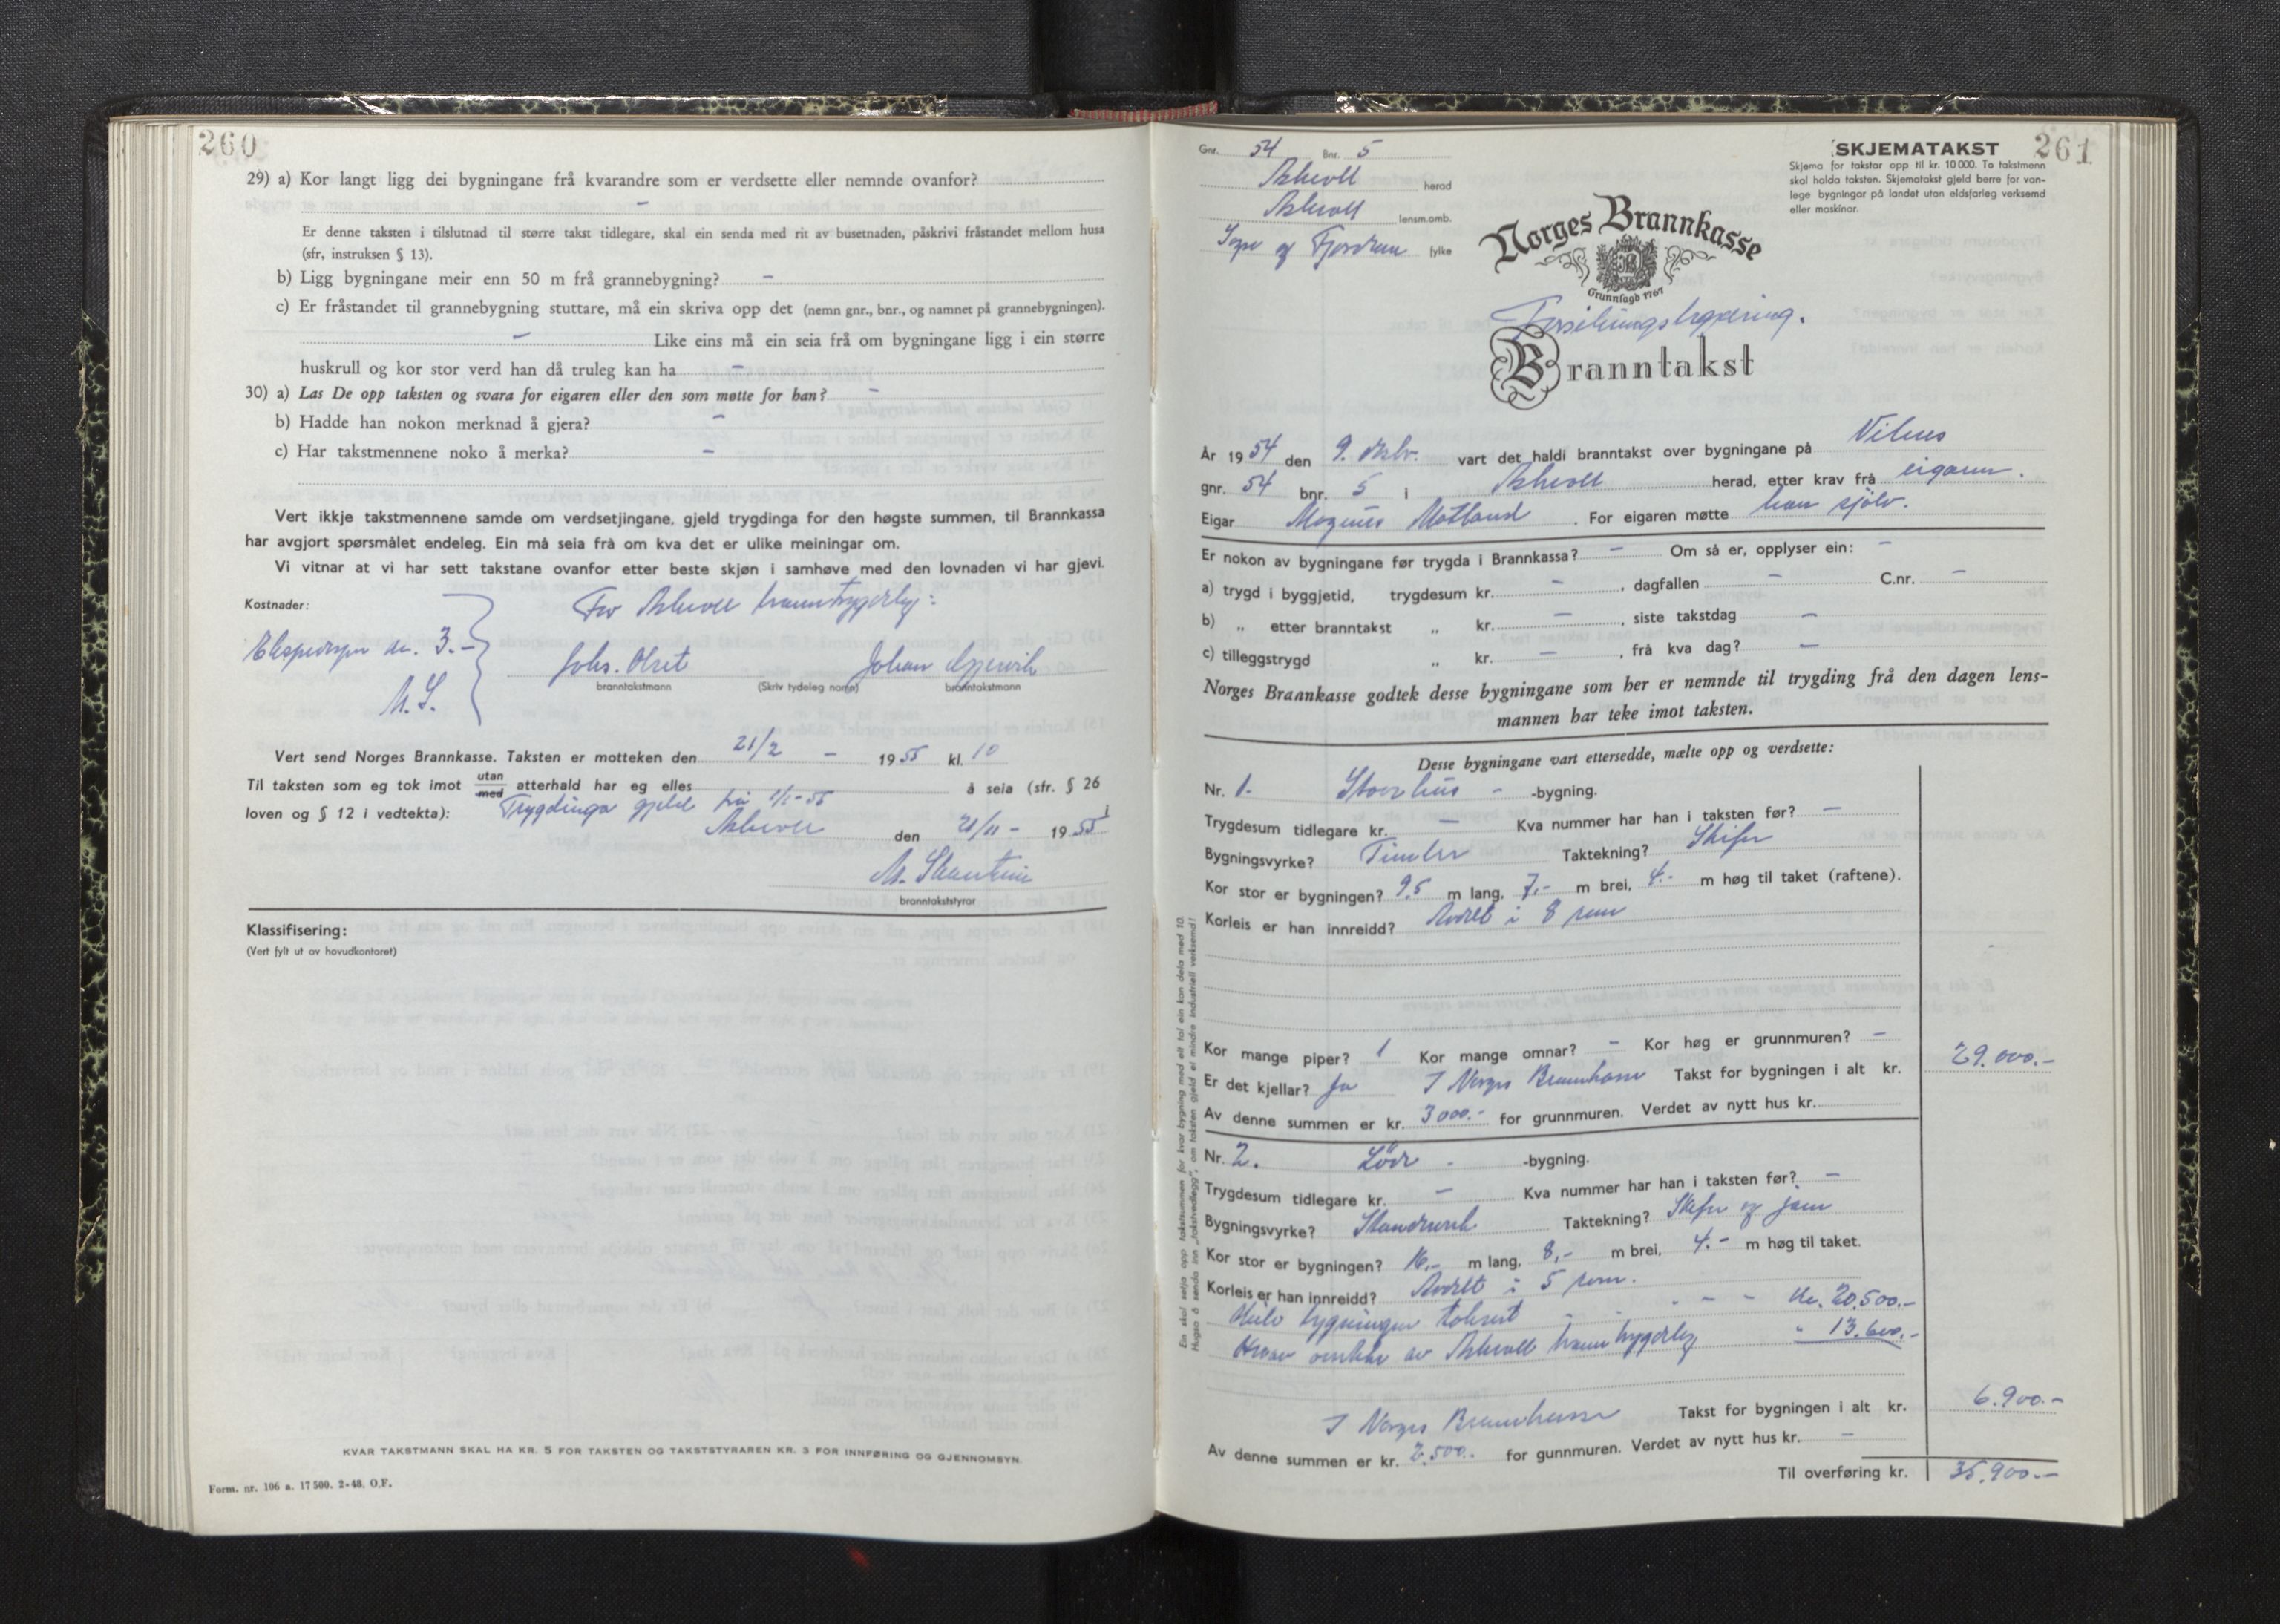 260
29) a) Kor langt ligg dei bygningane frå kvarandre som er verdsette eller nemnde ovanfor?
–
Er denne taksten i tilslutnad til større takst tidlegare, skal ein senda med rit av busetnaden, påskrivi fråstandet mellom husa
(sfr, instruksen § 13).
b) Ligg bygningane meir enn 50 m frå grannebygning? –
c) Er fråstandet til grannebygning stuttare, må ein skriva opp det (nemn gnr., bnr., og namnet på grannebygningen).
– Like eins må ein seia frå om bygningane ligg i ein større
huskrull og kor stor verd han då truleg kan ha –
30) a) Las De opp taksten og svara for eigaren eller den som møtte for han? –
b) Hadde han nokon merknad å gjera? –
c) Har takstmennene noko å merka? –
Vert ikkje takstmennene samde om verdsetjingane, gjeld trygdinga for den høgste summen, til Brannkassa
har avgjort spørsmålet endeleg. Ein må seia frå om kva det er ulike meiningar om.
Vi vitnar at vi har sett takstane ovanfor etter beste skjøn i samhøve med den lovnaden vi har gjevi.
Kostnader:
For Askvoll branntrygdelag:
3.-
Johs. Olset Johan
branntakstmann (Skriv tydeleg namn) branntakstmann
M.S.
Vert send Norges Brannkasse. Taksten er motteken den 21/2 – 1955 kl. 10
Til taksten som eg tok imot utan/med atterhald har eg elles å seia (sfr. § 26
loven og § 12 i vedtekta): Trygdinga gjeld frå 1/1-55
Askvoll den 21/11 – 1955
branntakststyrar
Klassifisering:
(Vert fylt ut av hovudkontoret)
KVAR TAKSTMANN SKAL HA KR. 5 FOR TAKSTEN OG TAKSTSTYRAREN KR. 3 FOR INNFØRING OG GJENNOMSYN.
Form. nr. 106 a. 17 500. 2-48. O.F.
261
Gnr. 54 Bnr. 5
Askvoll herad
Askvoll lensm.omb.
Sogn og Fjordane fylke
SKJEMATAKST
Skjema for takstar opp til kr. 10 000. To takstmenn
skal halda taksten. Skjematakst gjeld berre for van-
lege bygningar på landet utan eldsfarleg verksemd
eller maskinar.
Norges Brannkasse
Grunnlagd 1767
Forsikringsregulering.
Branntakst
År 1954 den 9. vart det haldi branntakst over bygningane på Vilnes
gnr. 54 bnr. 5 i Askvoll herad, etter krav frå eigaren.
Eigar Magnus Matland. For eigaren møtte han sjølv.
Er nokon av bygningane før trygda i Brannkassa? – Om så er, opplyser ein: –
a) trygd i byggjetid, trygdesum kr. –, dagfallen – C.nr. –
b) „ etter branntakst „ kr. –, siste takstdag –
c) tilleggstrygd „ kr. –, frå kva dag? –
Norges Brannkasse godtek desse bygningane som her er nemnde til trygding frå den dagen lens-
mannen har teke imot taksten.
Desse bygningane vart ettersedde, mælte opp og verdsette:
Nr. 1. Stovehus – -bygning.
Trygdesum tidlegare kr. – Kva nummer har han i taksten før? –
Bygningsvyrke? Timber Taktekning? Skifer
Kor stor er bygningen? 9.5 m lang, 7,- m brei, 4.- m høg til taket (raftene).
Korleis er han innreidd? Avdelt i 8 rum
Kor mange piper? 1 Kor mange omnar? – Kor høg er grunnmuren? –
Er det kjellar? Ja I Norges Brannkasse Takst for bygningen i alt kr. 29.000.-
Av denne summen er kr. 3000.- for grunnmuren. Verdet av nytt hus kr.
Nr. 2. Löde - -bygning.
Trygdesum tidlegare kr. – Kva nummer har han i taksten før? –
Bygningsvyrke? Standverk Taktekning? Skifer og jarn
Kor stor er bygningen? 16,- m lang, 8,- m brei, 4.- m høg til taket.
Korleis er han innreidd? Avdelt i 5 rum.
Heile bygningen taksert - - - - kr. 20.500.-
av Askvoll branntrygdelag " 13.600.-
I Norges Brannkasse Takst for bygningen i alt kr. 6.900.-
Av denne summen er kr. 2.500.- for gunnmuren. Verdet av nytt hus kr. –
Til overføring kr. 35.900.-
Ein skal setja opp takstsummen for kvar bygning med eit tal ein kan dela med 10.
Hugso å senda inn „takstvedlegg”, om taksten gjeld ei mindre industriell verksemd!